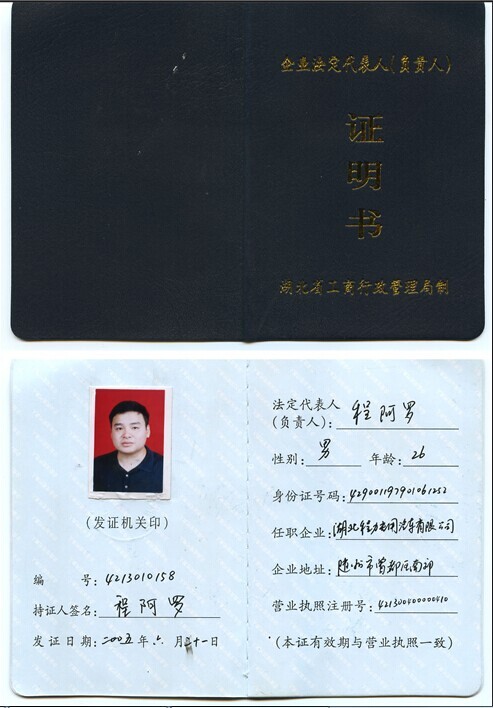 企业法定代表人(负责人)
证
明
书
湖北省工商行政管理局制
(发证机关印)
编 号: 4213010158
持证人签名: 程阿罗
发证日期: 二00五年 六 月 二十一日
法定代表人
(负责人): 程阿罗
性别: 男 年龄: 26
身份证号码: 429001197901061252
任职企业: 湖北 专用汽车有限公司
企业地址: 随州市曾都区南郊
营业执照注册号:
(本证有效期与营业执照一致)